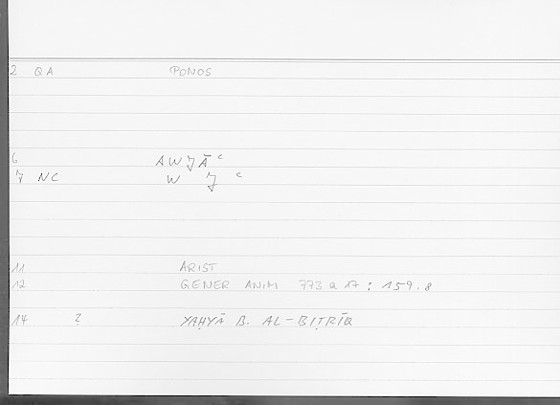 2 QA PONOS
6 AWǦĀʿ
7 NC W Ǧ ʿ
11 ARIST
12 GENER ANIM 773 a 17 : 159.8
14 ? YAḤYĀ B. AL-BIṬRĪQ